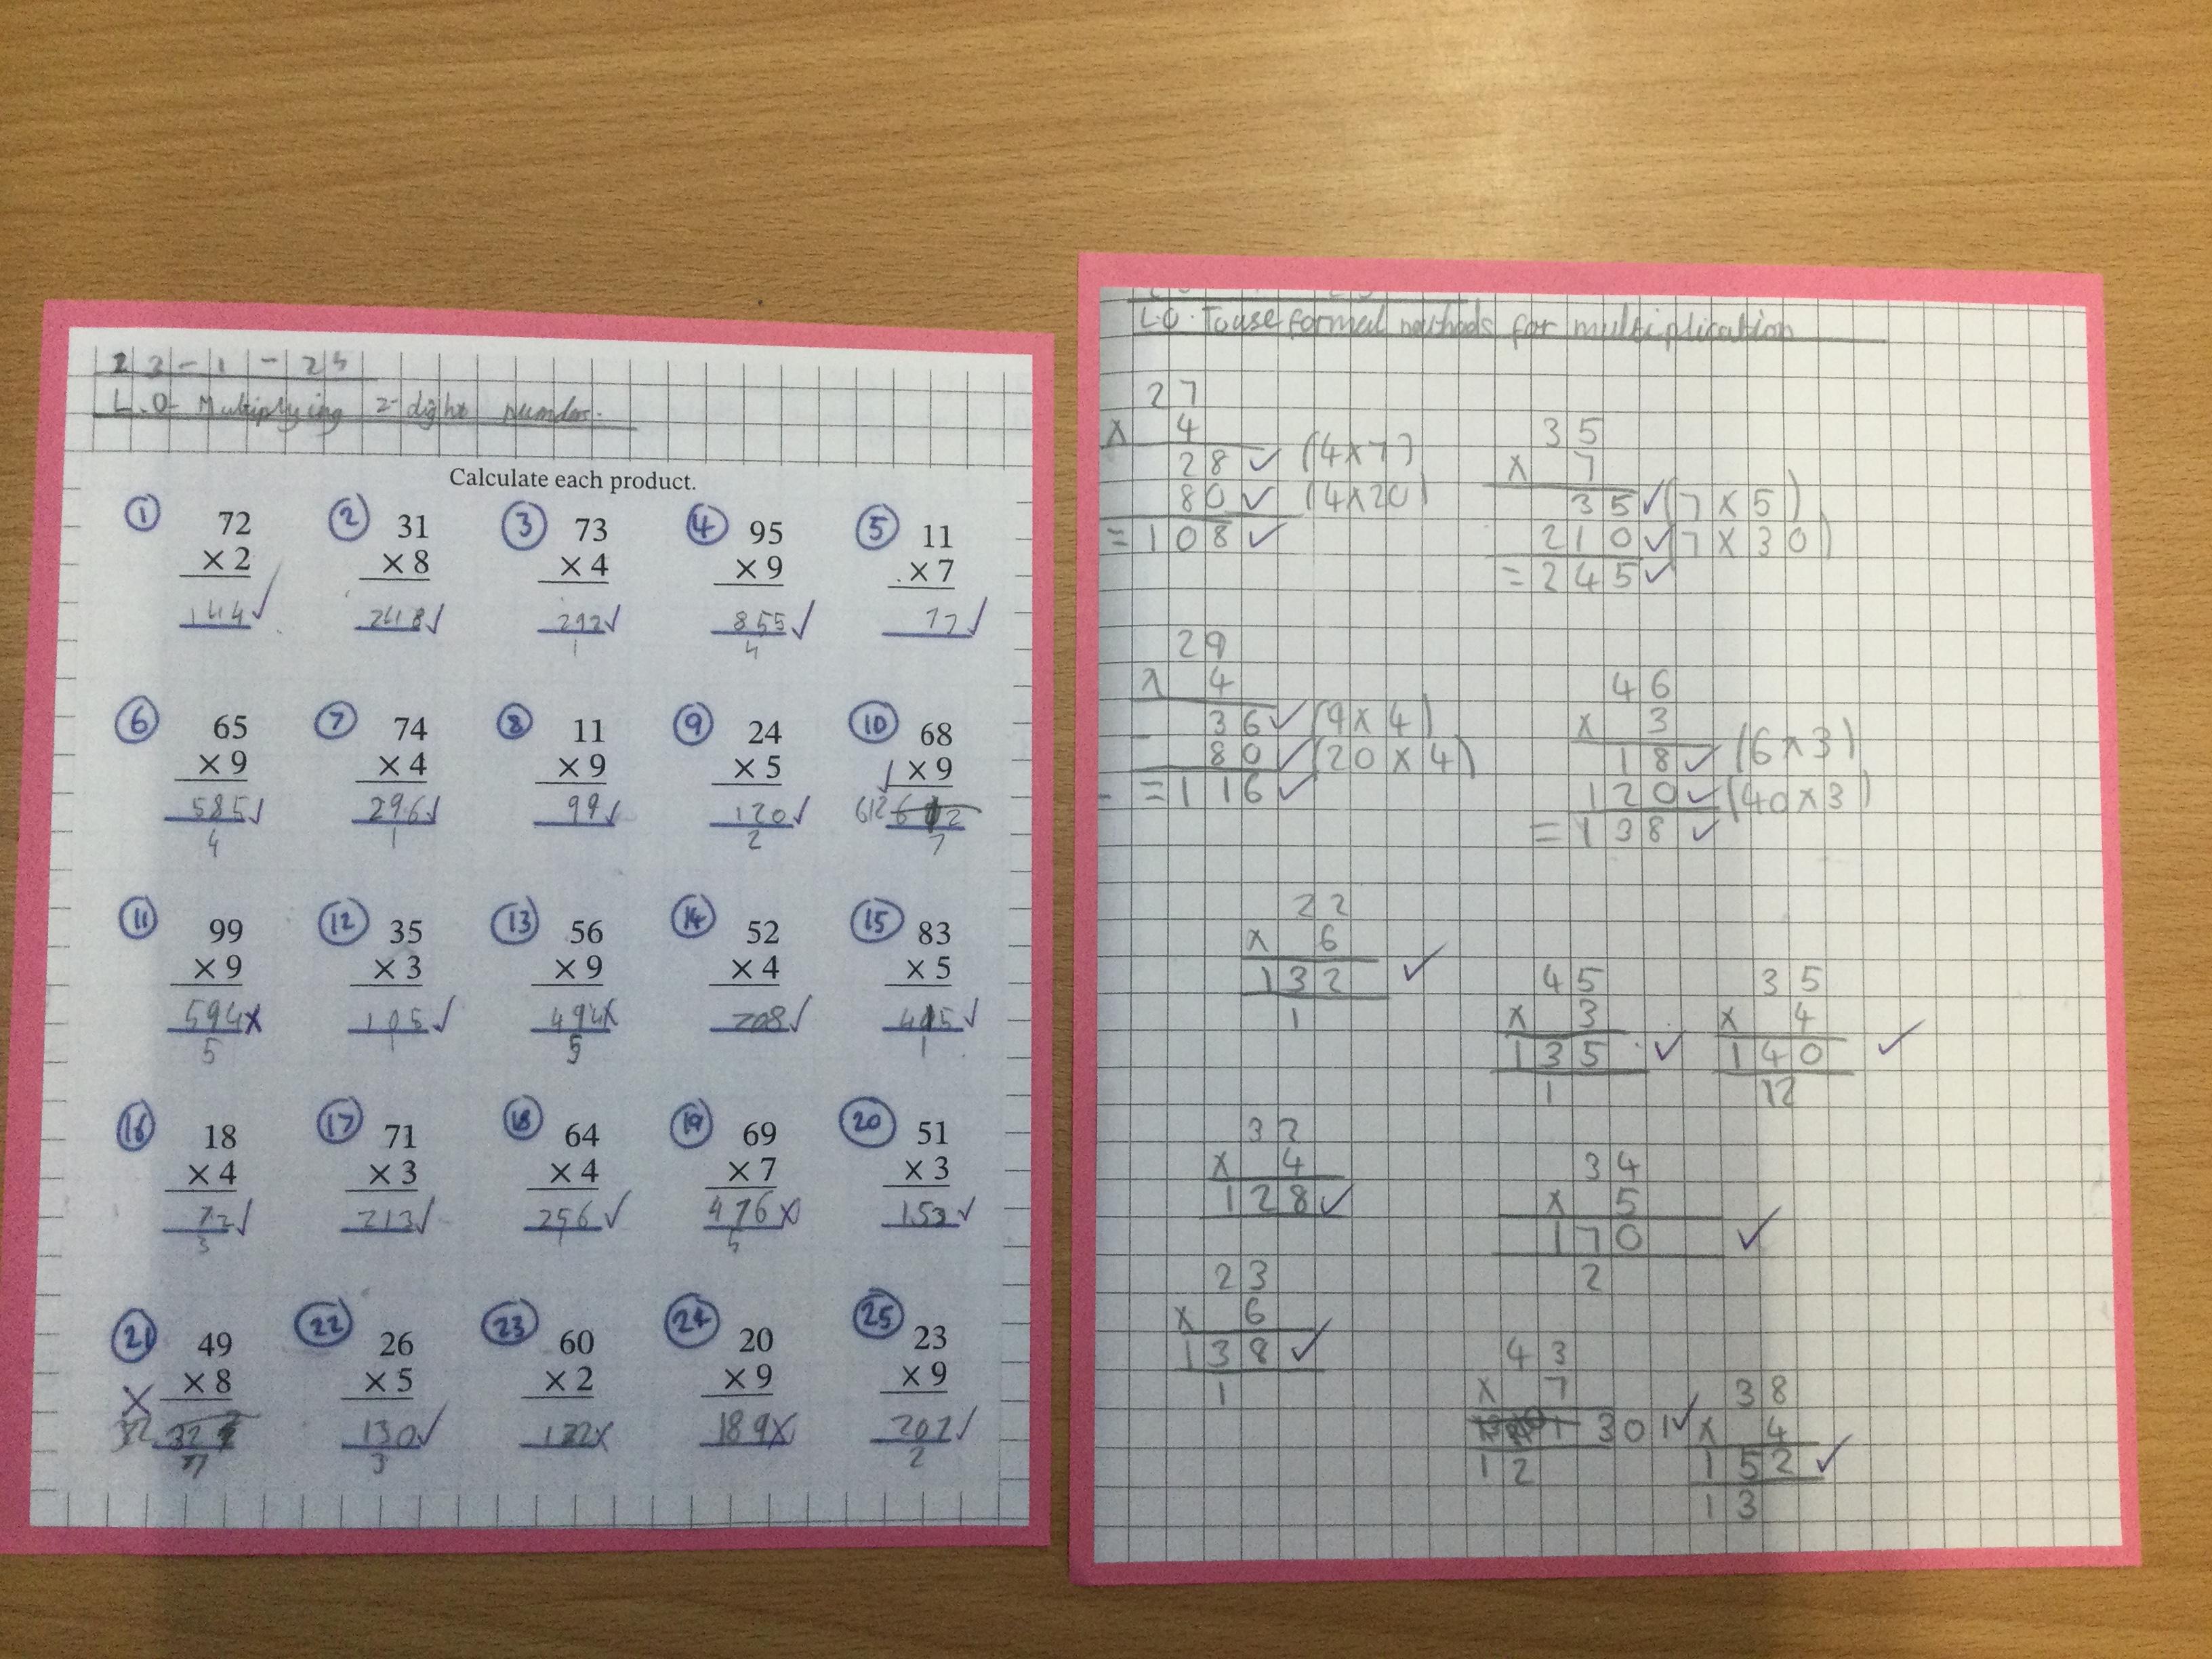 23-1-25
L.O- Multiplying 2-digit numbers.
Calculate each product.
① 72 ② 31 ③ 73 ④ 95 ⑤ 11
×2 ×8 ×4 ×9 ×7
144✓ 248✓ 292✓ 855✓ 77✓
1 4
⑥ 65 ⑦ 74 ⑧ 11 ⑨ 24 ⑩ 68
×9 ×4 ×9 ×5 ✓ ×9
585✓ 296✓ 99✓ 120✓ 612
4 1 2 7
⑪ 99 ⑫ 35 ⑬ 56 ⑭ 52 ⑮ 83
×9 ×3 ×9 ×4 ×5
594x 105✓ 494x 208✓ 415✓
5 1 5 1
⑯ 18 ⑰ 71 ⑱ 64 ⑲ 69 ⑳ 51
×4 ×3 ×4 ×7 ×3
72✓ 213✓ 256✓ 476x 153✓
3 1 5
㉑ 49 ㉒ 26 ㉓ 60 ㉔ 20 ㉕ 23
x ×8 ×5 ×2 ×9 ×9
130✓ 122x 189x 207✓
3 2
L.O. To use formal methods for multiplication
27
x 4
28✓ (4x7)
80✓ (4x20)
=108✓
35
x 7
35✓(7x5)
210✓(7x30)
=245✓
29
x 4
36✓(9x4)
80✓(20x4)
=116✓
46
x 3
18✓(6x3)
120✓(40x3)
=138✓
22
x 6
132 ✓
1
45
x 3
135 ✓
1
35
x 4
140 ✓
12
32
x 4
128✓
34
x 5
170 ✓
2
23
x 6
138✓
1
43
x 7
301✓
12
38
x 4
152✓
13